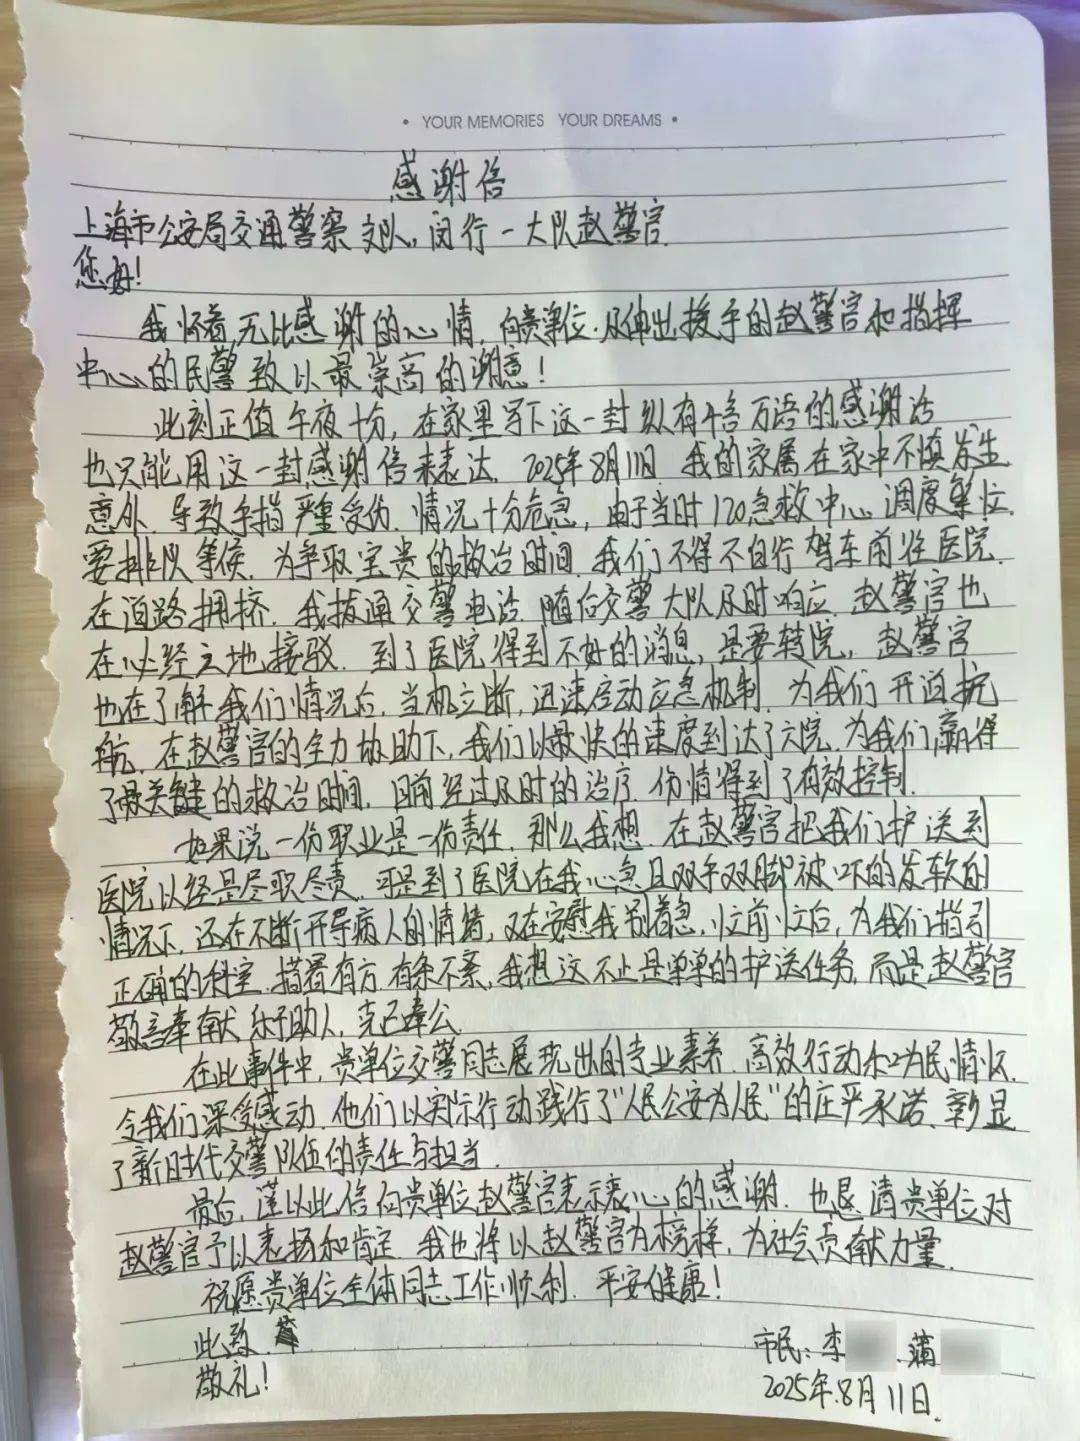 • YOUR MEMORIES YOUR DREAMS •
感谢信
上海市公安局交通警察支队,闵行一大队赵警官
您好!
我怀着无比感谢的心情,向贵单位.及伸出援手的赵警官和指挥
中心的民警致以最崇高的谢意!
此刻正值午夜十分,在家里写下这一封纵有千言万语的感谢话
也只能用这一封感谢信来表达.2025年8月11日.我的家属在家中不慎发生
意外.导致手指严重受伤.情况十分危急,由于当时120急救中心调度繁忙.
要排队等候.为争取宝贵的救治时间.我们不得不自行驾车前往医院.
在道路拥挤.我拨通交警电话.随后交警大队及时响应.赵警官也
在必经之地接驳.到了医院得到不好的消息,是要转院,赵警官
也在了解我们情况后.当机立断,迅速启动应急机制.为我们开道护
航.在赵警官的全力协助下,我们以最快的速度到达了六院.为我们赢得
了最关键的救治时间.目前经过及时的治疗.伤情得到了有效控制.
如果说一份职业是一份责任.那么我想.在赵警官把我们护送到
医院以经是尽职尽责.可是到了医院在我心急且双手双脚被吓的发软的
情况下,还在不断开导病人的情绪,又在安慰我别着急,忙前忙后,为我们指引
正确的科室.措署有方.有条不紊,我想这不止是单单的护送任务,而是赵警官
敬言奉献,乐于助人,克己奉公.
在此事件中,贵单位交警同志展现出的专业素养.高效行动和为民情怀.
令我们深受感动.他们以实际行动践行了"人民公安为人民"的庄严承诺.彰显
了新时代交警队伍的责任与担当.
最后,谨以此信向贵单位赵警官表示衷心的感谢.也恳请贵单位对
赵警官予以表扬和肯定.我也将以赵警官为榜样,为社会贡献力量.
祝愿贵单位全体同志工作顺利.平安健康!
此致.
敬礼!
市民:李 .蒲
2025年.8月11日.